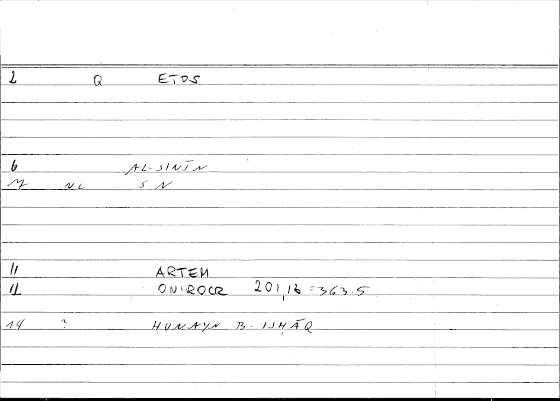 2 Q ETOS
6 AL-SINĪN
7 NL S N
11 ARTEM
12 ONIROCR 201,16 = 363.5
14 ? ḤUNAYN B. ISḤĀQ